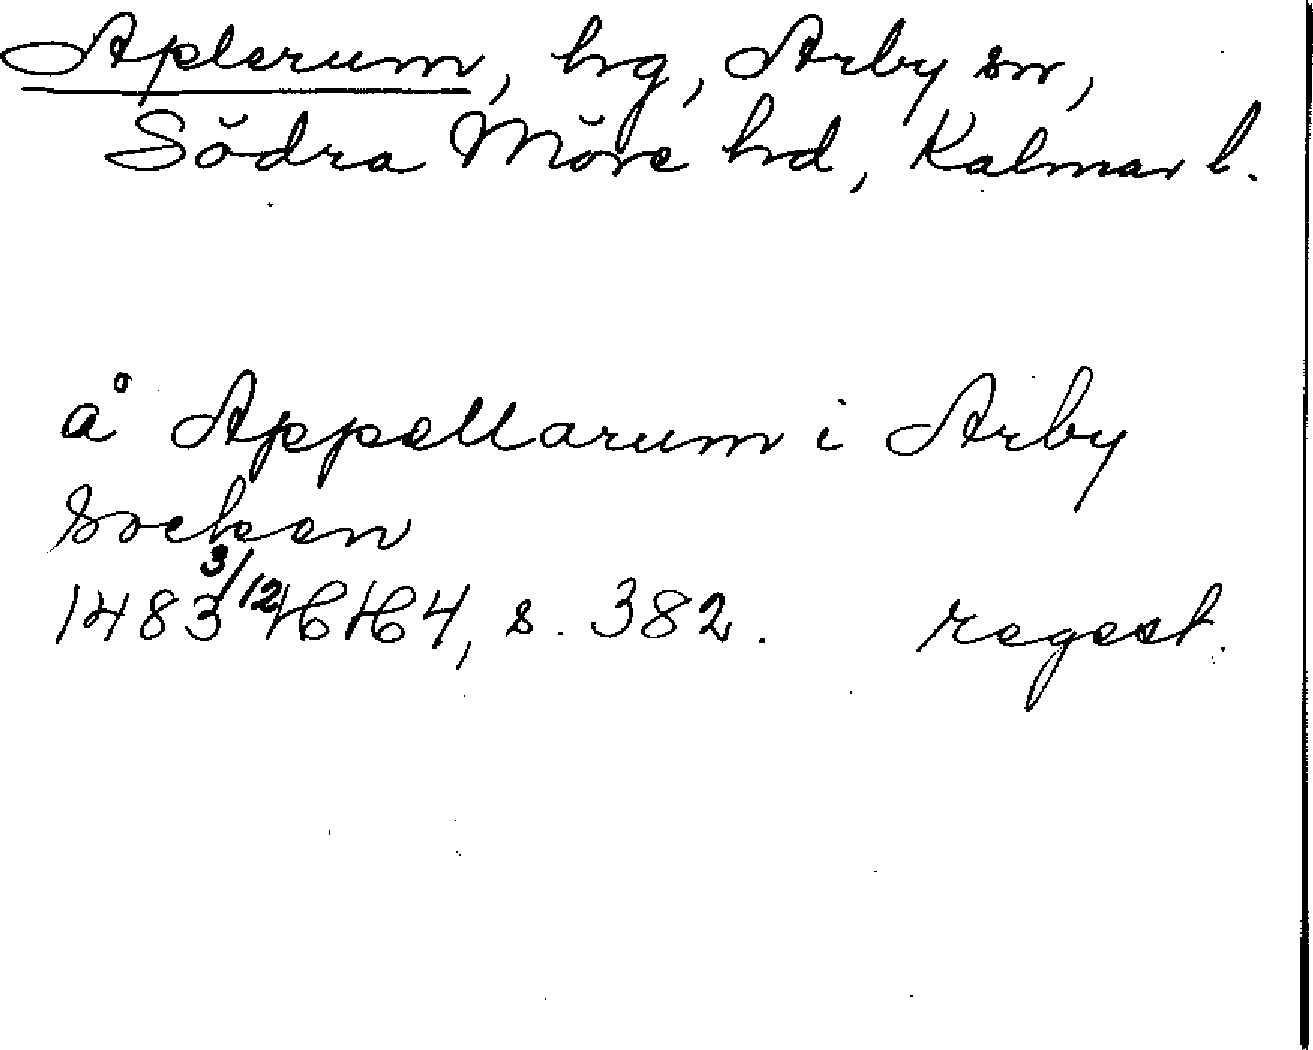 Aplerum, hg, Arby sn,
Södra Möre hd, Kalmar l.
å Appellarum i Arby
Socken
1483 3/12 HH 4, s. 382. regest.